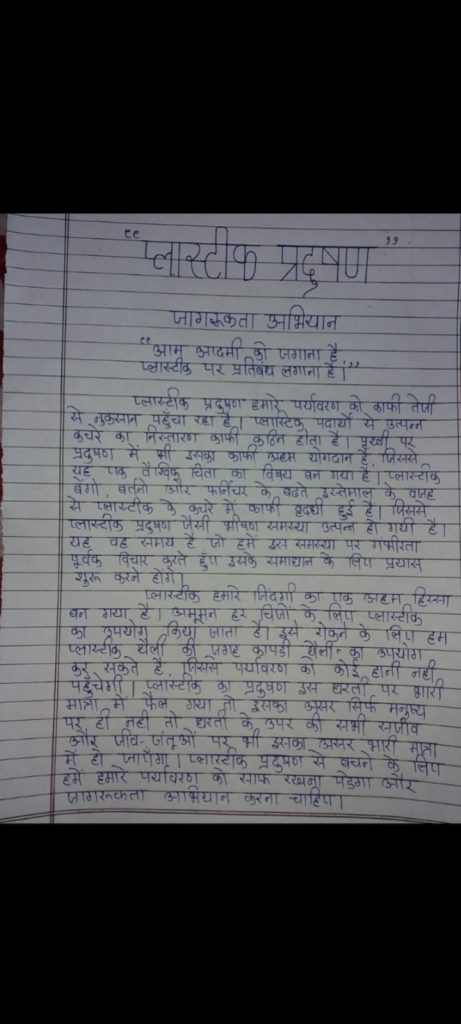 “ प्लास्टीक प्रदुषण ”
जागरूकता अभियान
“ आम आदमी को जगाना है,
प्लास्टीक पर प्रतिबंध लगाना है। ”
प्लास्टीक प्रदुषण हमारे पर्यावरण को काफी तेजी
से नुकसान पहुँचा रहा है। प्लास्टिक पदार्थो से उत्पन्न
कचरे का निस्तारण काफी कठिन होता है। पृथ्वी पर
प्रदुषण में भी इसका काफी अहम योगदान है, जिससे
यह एक वैश्विक चिंता का विषय बन गया है। प्लास्टीक
बेगो, बर्तनो और फर्निचर के बढते इस्तेमाल के वजह
से प्लास्टीक के कचरे में काफी वृदधी हुई है। जिससे
प्लास्टीक प्रदुषण जैसी भीषण समस्या उत्पन्न हो गयी है।
यह वह समय है जो हमें इस समस्या पर गंभीरता
पूर्वक विचार करते हुए इसके समाधान के लिए प्रयास
शुरू करने होंगे।
प्लास्टीक हमारे जिंदगी का एक अहम हिस्सा
बन गया है। अमूमन हर चिजों के लिए प्लास्टीक
का उपयोग किया जाता है। इसे रोकने के लिए हम
प्लास्टीक थैली की जगह कापडी थैली का उपयोग
कर सकते है, जिससे पर्यावरण को कोई हानी नही
पहुँचेगी। प्लास्टीक का प्रदुषण इस धरती पर भारी
मात्रा में फैल गया तो इसका असर सिर्फ मनुष्य
पर ही नही तो धरती के उपर की सभी सजीव
और जीव-जंतूओं पर भी इसका असर भारी मात्रा
में हो जाएँगा। प्लास्टीक प्रदुषण से बचने के लिए
हमें हमारे पर्यावरण को साफ रखना पडेगा और
जागरूकता अभियान करना चाहिए।